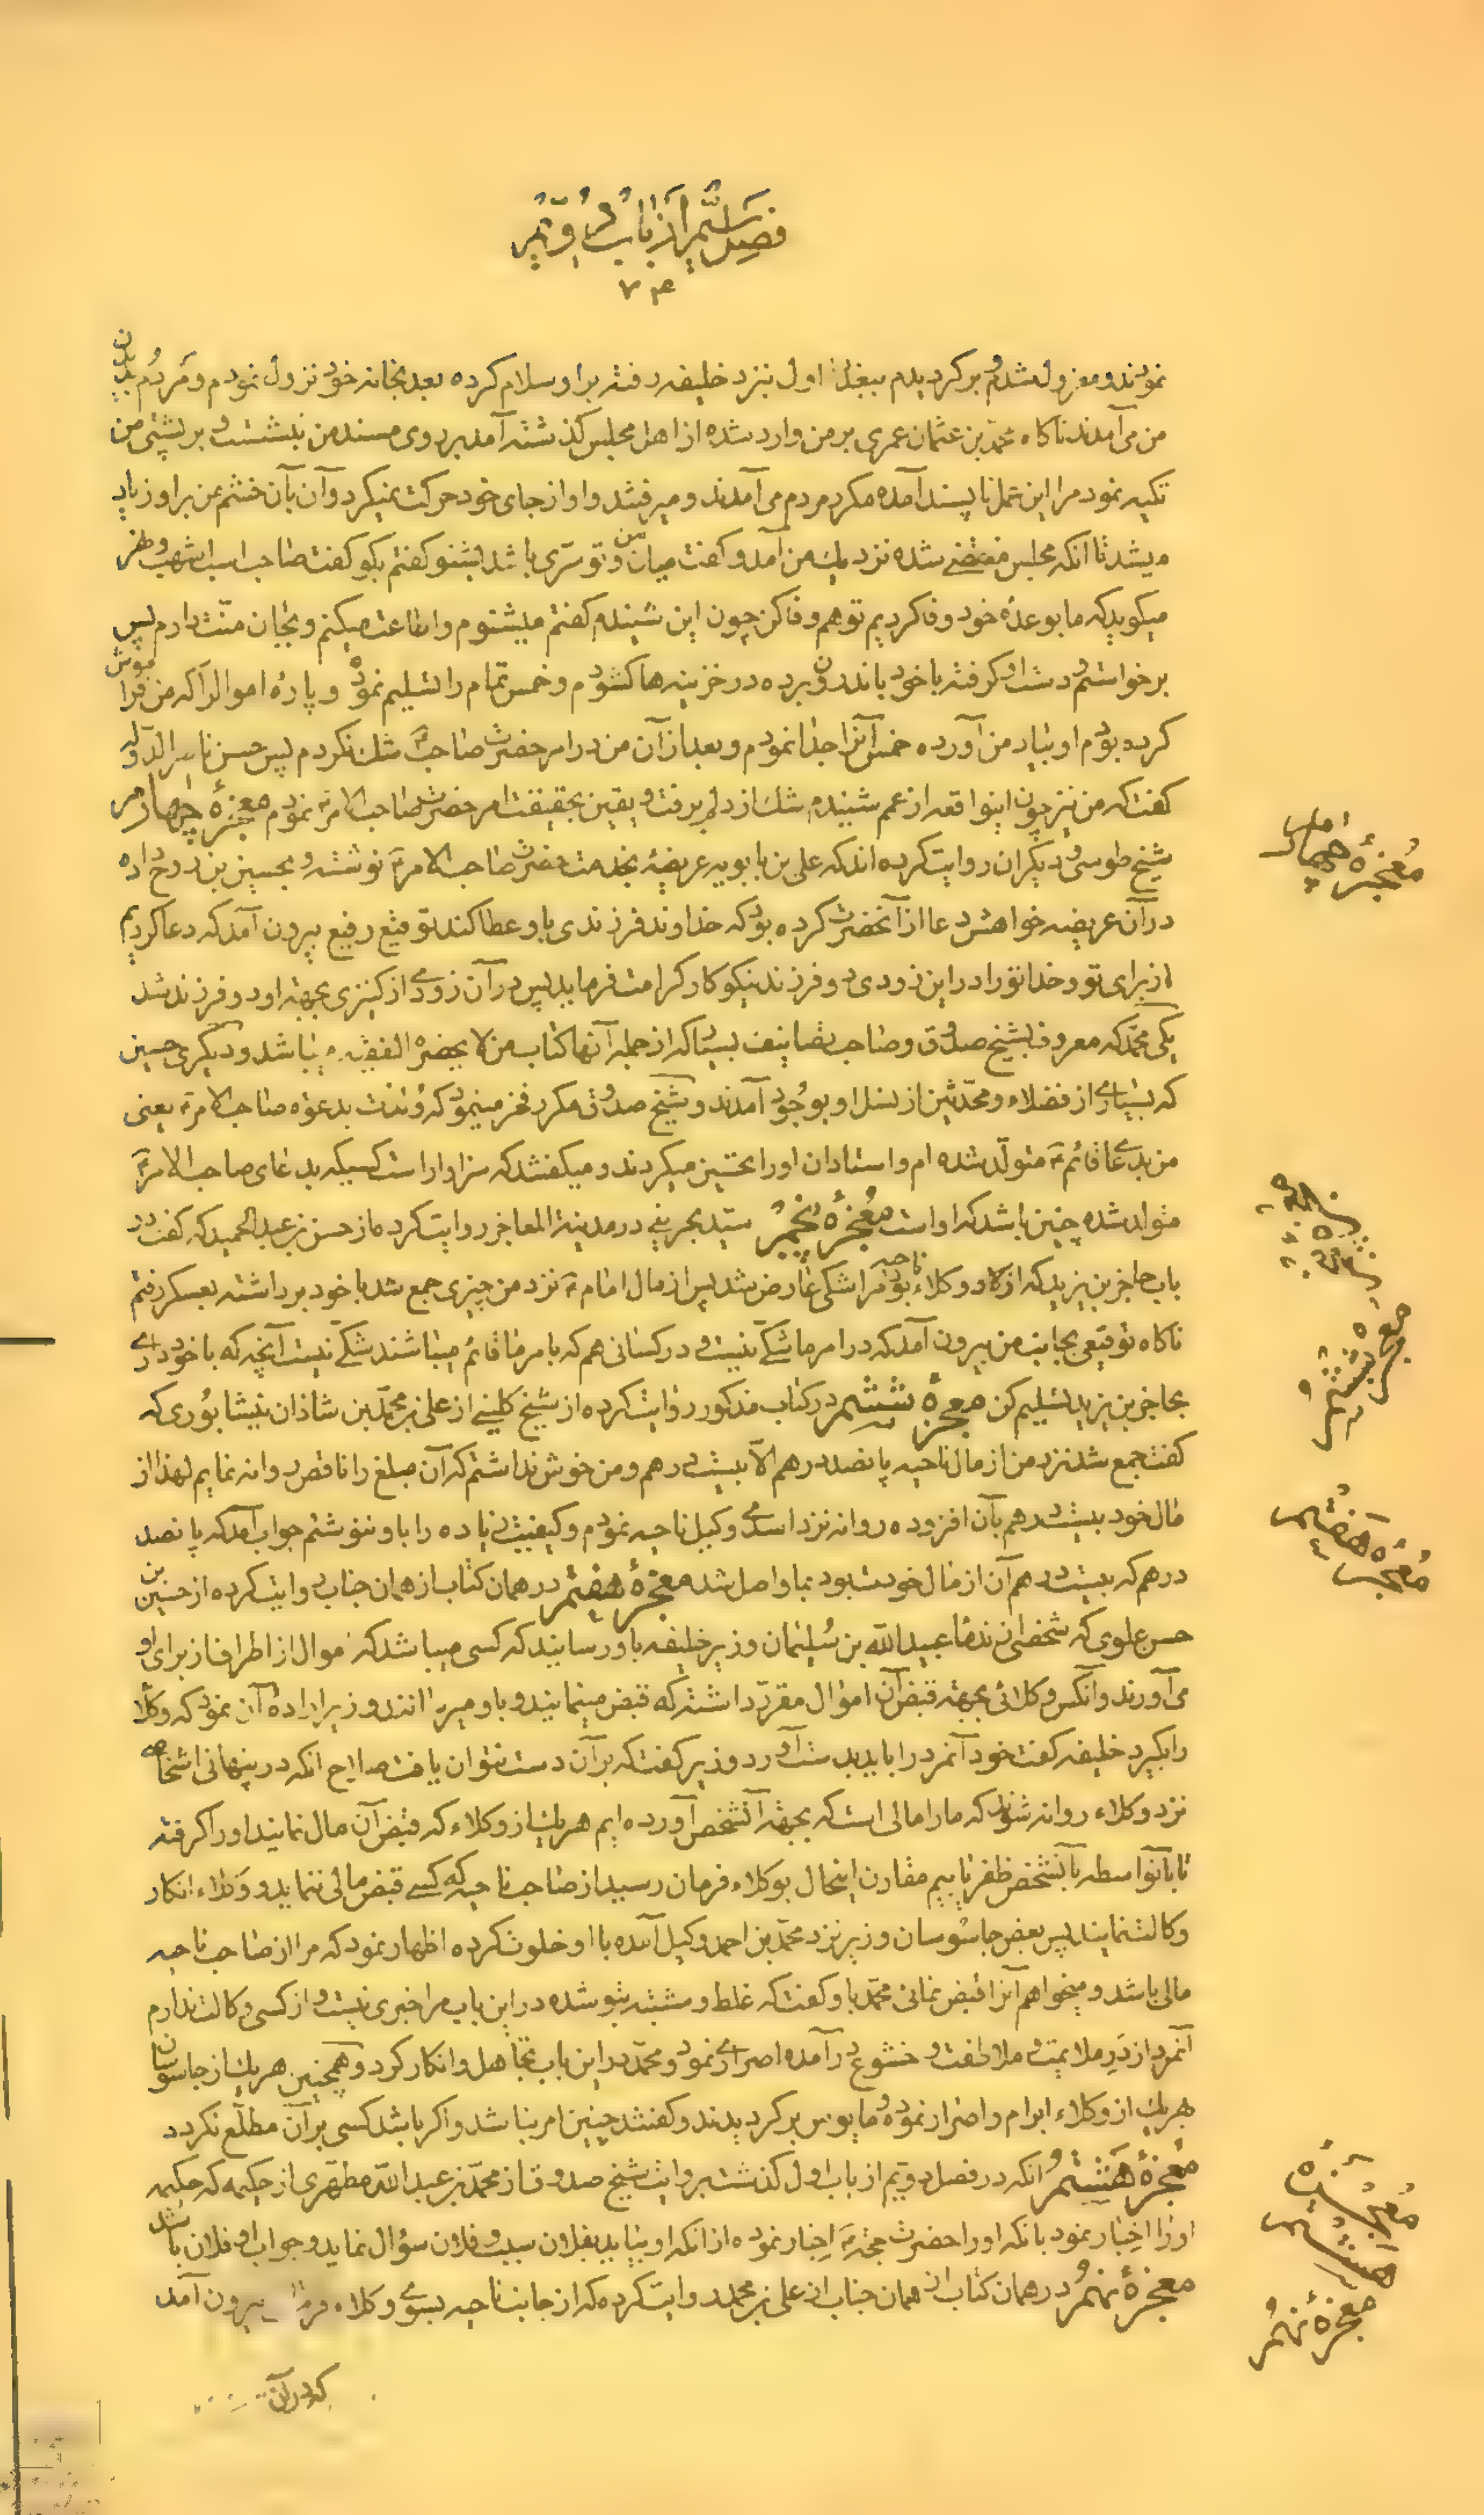 فصل ششم از باب دویم
۷۴
نمودند و معزول شدم و برکردیدم ببغداد اول بنزد خلیفه رفته بر او سلام کرده بعد بخانه خود نزول نمودم و مردم بدیدن
من می‌آمدند ناکاه محمد بن عثمان عمری بر من وارد شده از اهل مجلس کذشته آمد بر روی مسند من بنشست و بر پشتی من
تکیه نمود مرا این عمل ناپسند آمده مکرر مردم می‌آمدند و میرفتند و او از جای خود حرکت نمیکرد و آن بآن خشم من بر او زیاد
میشد تا انکه مجلس منقضی شده نزدیک من آمد و کفت میان من و تو سرّی باشد بشنو کفتم بکو کفت صاحب اسب اشهب و نهر
میکوید که ما بوعده خود وفا کردیم تو هم وفا کن چون این شنیدم کفتم میشنوم و اطاعت میکنم و بجان منّت دارم پس
برخواستم دست او کرفته با خود باندرون برده در خزینه ها کشودم و خمس تمام را تسلیم نموده و پاره اموالرا که من فراموش
کرده بودم او بیاد من آورده خمس آنرا جدا نمودم و بعد از آن من در امر حضرت صاحب شک نکردم پس حسن ناصر الدوله
کفت که من نیز چون اینواقعه از عمم شنیدم شک از دلم برفت و یقین بحقیقت امر حضرت صاحب الامر نمودم معجزه چهارم
شیخ طوسی و دیکران روایت کرده اند که علی بن بابویه عریضه بخدمت حضرت صاحب الامر نوشته و بحسین بن روح داده
در آن عریضه خواهش دعا از آنحضرت کرده بود که خداوند فرزندی باو عطا کند توقیع رفیع بیرون آمد که دعا کردیم
از برای تو و خدا تو را در این زودی دو فرزند نیکوکار کرامت فرماید پس در آن زودی از کنیزی بجهة او دو فرزند شد
یکی محمد که معروف بشیخ صدوق و صاحب تصانیف بسیار که از جمله آنها کتاب من لا یحضره الفقیه میباشد و دیکری حسین
که بسیاری از فضلاء و محدّثین از نسل او بوجود آمدند و شیخ صدوق مکرر فخر مینمود که ولدت بدعوة صاحب الامر یعنی
من بدعای قائم متولّد شده ام و استادان او را تحسین میکردند و میکفتند که سزاوار است کسیکه بدعای صاحب الامر
متولد شده چنین باشد که او است معجزه پنجم سید بحرینی در مدینة المعاجز روایت کرده از حسن بن عبد الحمید که کفت در
باب حاجز بن یزید که از وکلاء ناحیه بود مرا شکی عارض شد پس از مال امام نزد من چیزی جمع شد با خود برداشته بعسکر رفتم
ناکاه توقیعی بجانب من بیرون آمد که در امر ما شکی نیست و در کسانی هم که بامر ما قائم میباشند شکی نیست آنچه که با خود داری
بحاجز بن یزید تسلیم کن معجزه ششم در کتاب مذکور روایت کرده از شیخ کلینی از علی بن محمد بن شاذان نیشابوری که
کفت جمع شد نزد من از مال ناحیه پانصد درهم الّا بیست درهم و من خوش نداشتم که آن مبلغ را ناقص روانه نمایم لهذا از
مال خود بیست درهم بآن افزوده روانه نزد اسدی وکیل ناحیه نمودم و کیفیت زیاده را باو ننوشتم جواب آمد که پانصد
درهم که بیست درهم آن از مال خودت بود بما واصل شد معجزه هفتم در همان کتاب از همان جناب روایت کرده از حسین بن
حسن علوی که شخصی از ندماء عبید الله بن سلیمان وزیر خلیفه باو رسانید که کسی میباشد که اموال از اطراف از برای او
می‌آورند و آنکس وکلائی بجهة قبض آن اموال مقرر داشته که قبض مینمایند و باو میرسانند و وزیر اراده آن نمود که وکلا
را بکیرد خلیفه کفت خود آنمرد را باید بدست آورد وزیر کفت که بر آن دست نتوان یافت صلاح انکه در پنهانی اشخاصی
نزد وکلاء روانه شوند که ما را مالی است که بجهة آنشخص آورده ایم هر یک از وکلاء که قبض آن مال نمایند او را کرفته
تا بآنواسطه بآنشخص ظفر یابیم مقارن اینحال بوکلاء فرمان رسید از صاحب ناحیه که کسی قبض مالی ننماید و وکلاء انکار
وکالت نمایند پس بعض جاسوسان وزیر نزد محمد بن احمد وکیل آمده با او خلوت کرده اظهار نمود که مرا از صاحب ناحیه
مالی باشد و میخواهم آنرا قبض نمائی محمد باو کفت که غلط و مشتبه بتو شده در این باب مرا خبری نیست و از کسی وکالت ندارم
آنمرد از در ملایمت و ملاطفت و خشوع در آمده اصراری نمود و محمد در این باب تجاهل و انکار کرد و همچنین هر یک از جاسوسان
هر یک از وکلاء ابرام و اصرار نموده و مایوس برکردیدند و کفتند چنین امر نباشد و اکر باشد کسی بر آن مطلّع نکردد
معجزه هشتم انکه در فصل دویم از باب اول کذشت بروایت شیخ صدوق از محمد بن عبد الله مطهری از حکیمه که حکیمه
او را اخبار نمود بانکه او را حضرت حجة اخبار نموده از انکه او بیاید بفلان سبب و فلان سؤال نماید و جواب او فلان باشد
معجزه نهم در همان کتاب از همان جناب از علی بن محمد روایت کرده که از جانب ناحیه بسوی وکلاء فرمان بیرون آمد
که در آن
معجزه چهارم
معجزه ششم
معجزه هفتم
معجزه هشتم
معجزه نهم